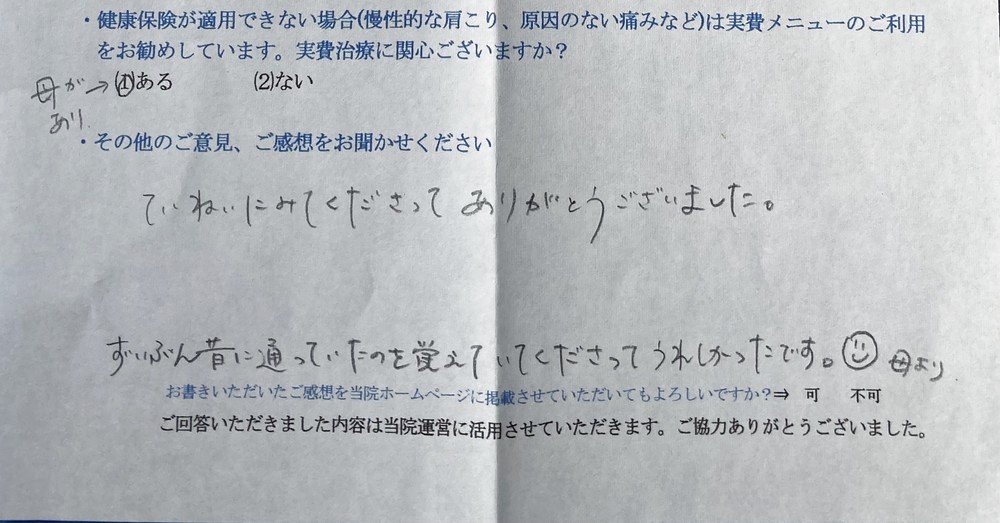 ・健康保険が適用できない場合(慢性的な肩こり、原因のない痛みなど)は実費メニューのご利用
をお勧めしています。実費治療に関心ございますか？
母が→(1)ある (2)ない
あり
・その他のご意見、ご感想をお聞かせください
ていねいにみてくださってありがとうございました。
ずいぶん昔に通っていたのを覚えていてくださってうれしかったです。 母より
お書きいただいたご感想を当院ホームページに掲載させていただいてもよろしいですか？⇒ 可 不可
ご回答いただきました内容は当院運営に活用させていただきます。ご協力ありがとうございました。